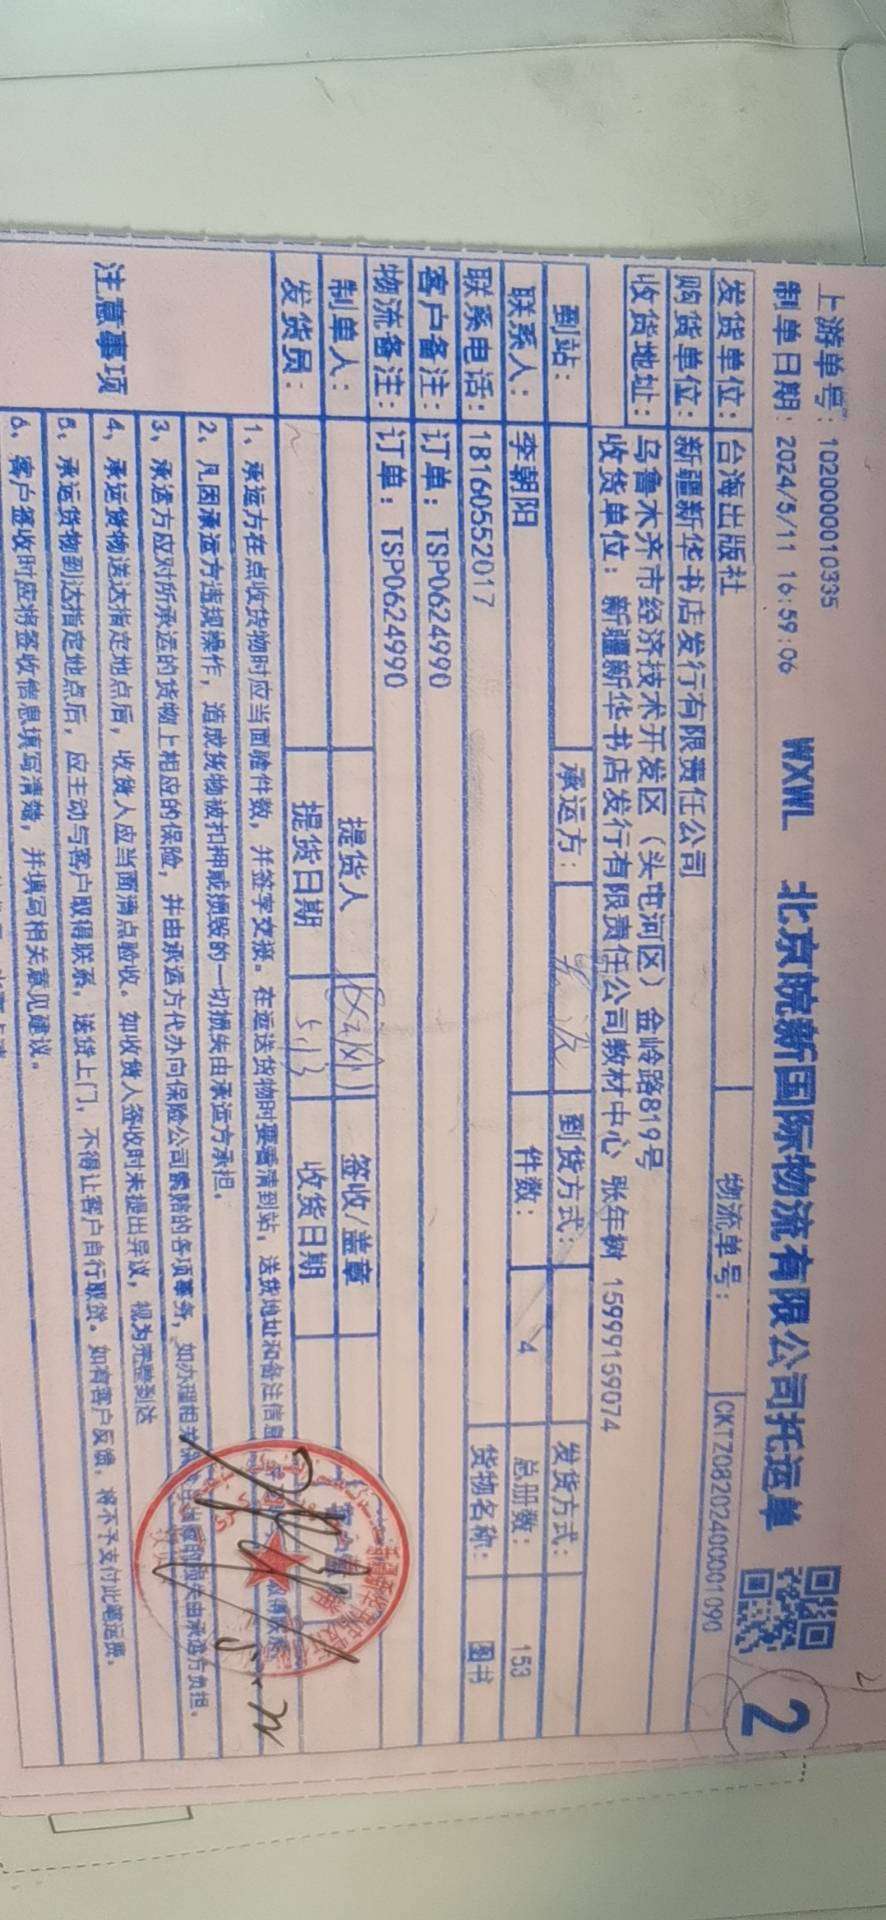 上游单号：1020000010335
制单日期：2024/5/11 16:59:06 WXWL 北京皖新国际物流有限公司托运单 2
发货单位：台海出版社 物流单号：CKTZ0820240001090
购货单位：新疆新华书店发行有限责任公司
收货地址：乌鲁木齐市经济技术开发区（头屯河区）金岭路819号
收货单位：新疆新华书店发行有限责任公司教材中心 张年树 15999159074
到站： 承运方： 到货方式： 发货方式：
联系人：李朝阳 件数：4 总册数：153
联系电话：18160552017 货物名称：图书
客户备注：订单：TSP0624990
物流备注：订单：TSP0624990
制单人： 提货人 签收/盖章
发货员： 提货日期 5.13 收货日期
注意事项
1、承运方在点收货物时应当面验件数，并签字交接。在运送货物时要看清到站，送货地址和备注信息
2、凡因承运方违规操作，造成货物被扣押或损毁的一切损失由承运方承担。
3、承运方应对所承运的货物上相应的保险，并由承运方代办向保险公司索赔的各项事务，如办理相关 的损失由承运方负担。
4、承运货物送达指定地点后，收货人应当面清点验收。如收货人签收时未提出异议，视为完整到达
5、承运货物到达指定地点后，应主动与客户取得联系，送货上门，不得让客户自行取货。如有客户反馈，将不予支付此笔运费。
6、客户签收时应将签收信息填写清楚，并填写相关意见建议。